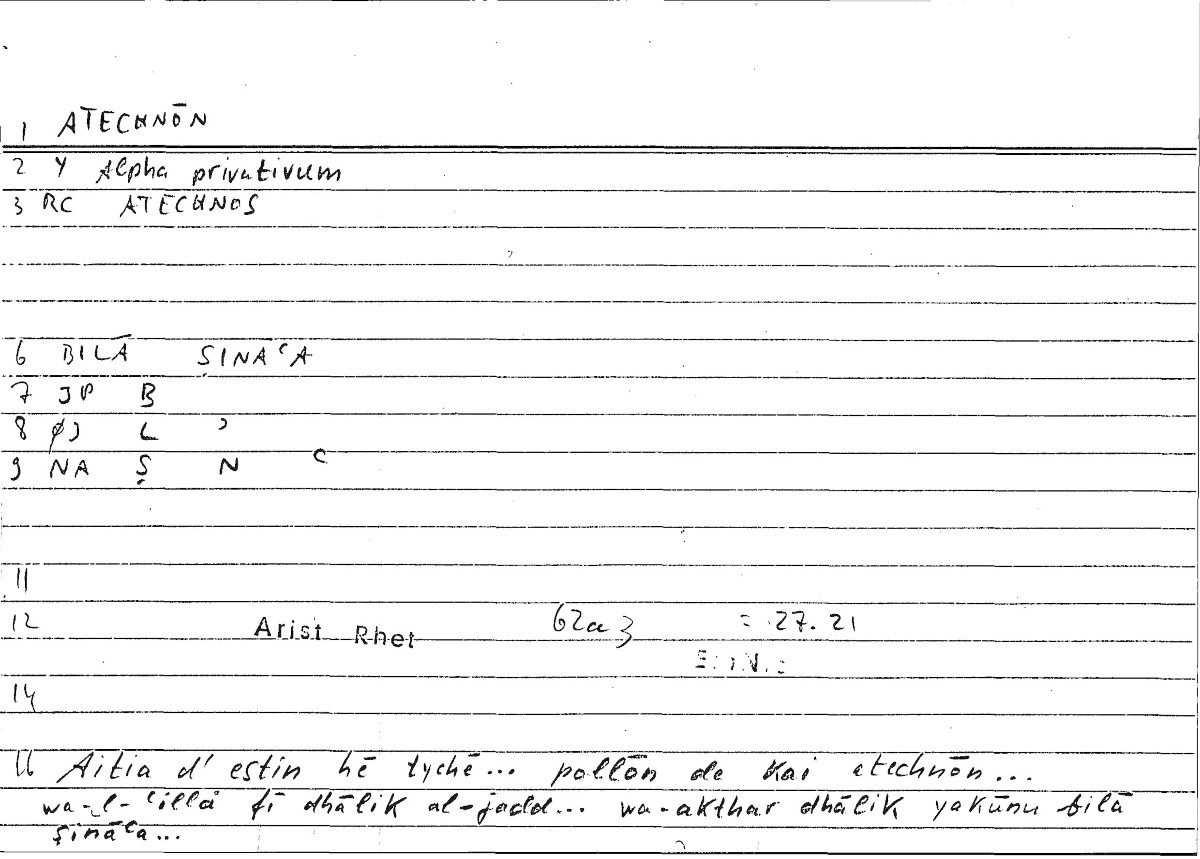 1 ATECHNŌN
2 Y Alpha privativum
3 RC ATECHNOS
6 BILĀ ṢINAʿA
7 JP B
8 ØJ L ʾ
9 NA Ṣ N ʿ
11
12 Arist Rhet 62a3 = 27.21
14
16 Aitia d' estin hē tychē... pollōn de kai atechnōn...
wa-l-ʿilla fī dhālik al-jadd... wa-akthar dhālik yakūnu bilā
ṣināʿa...